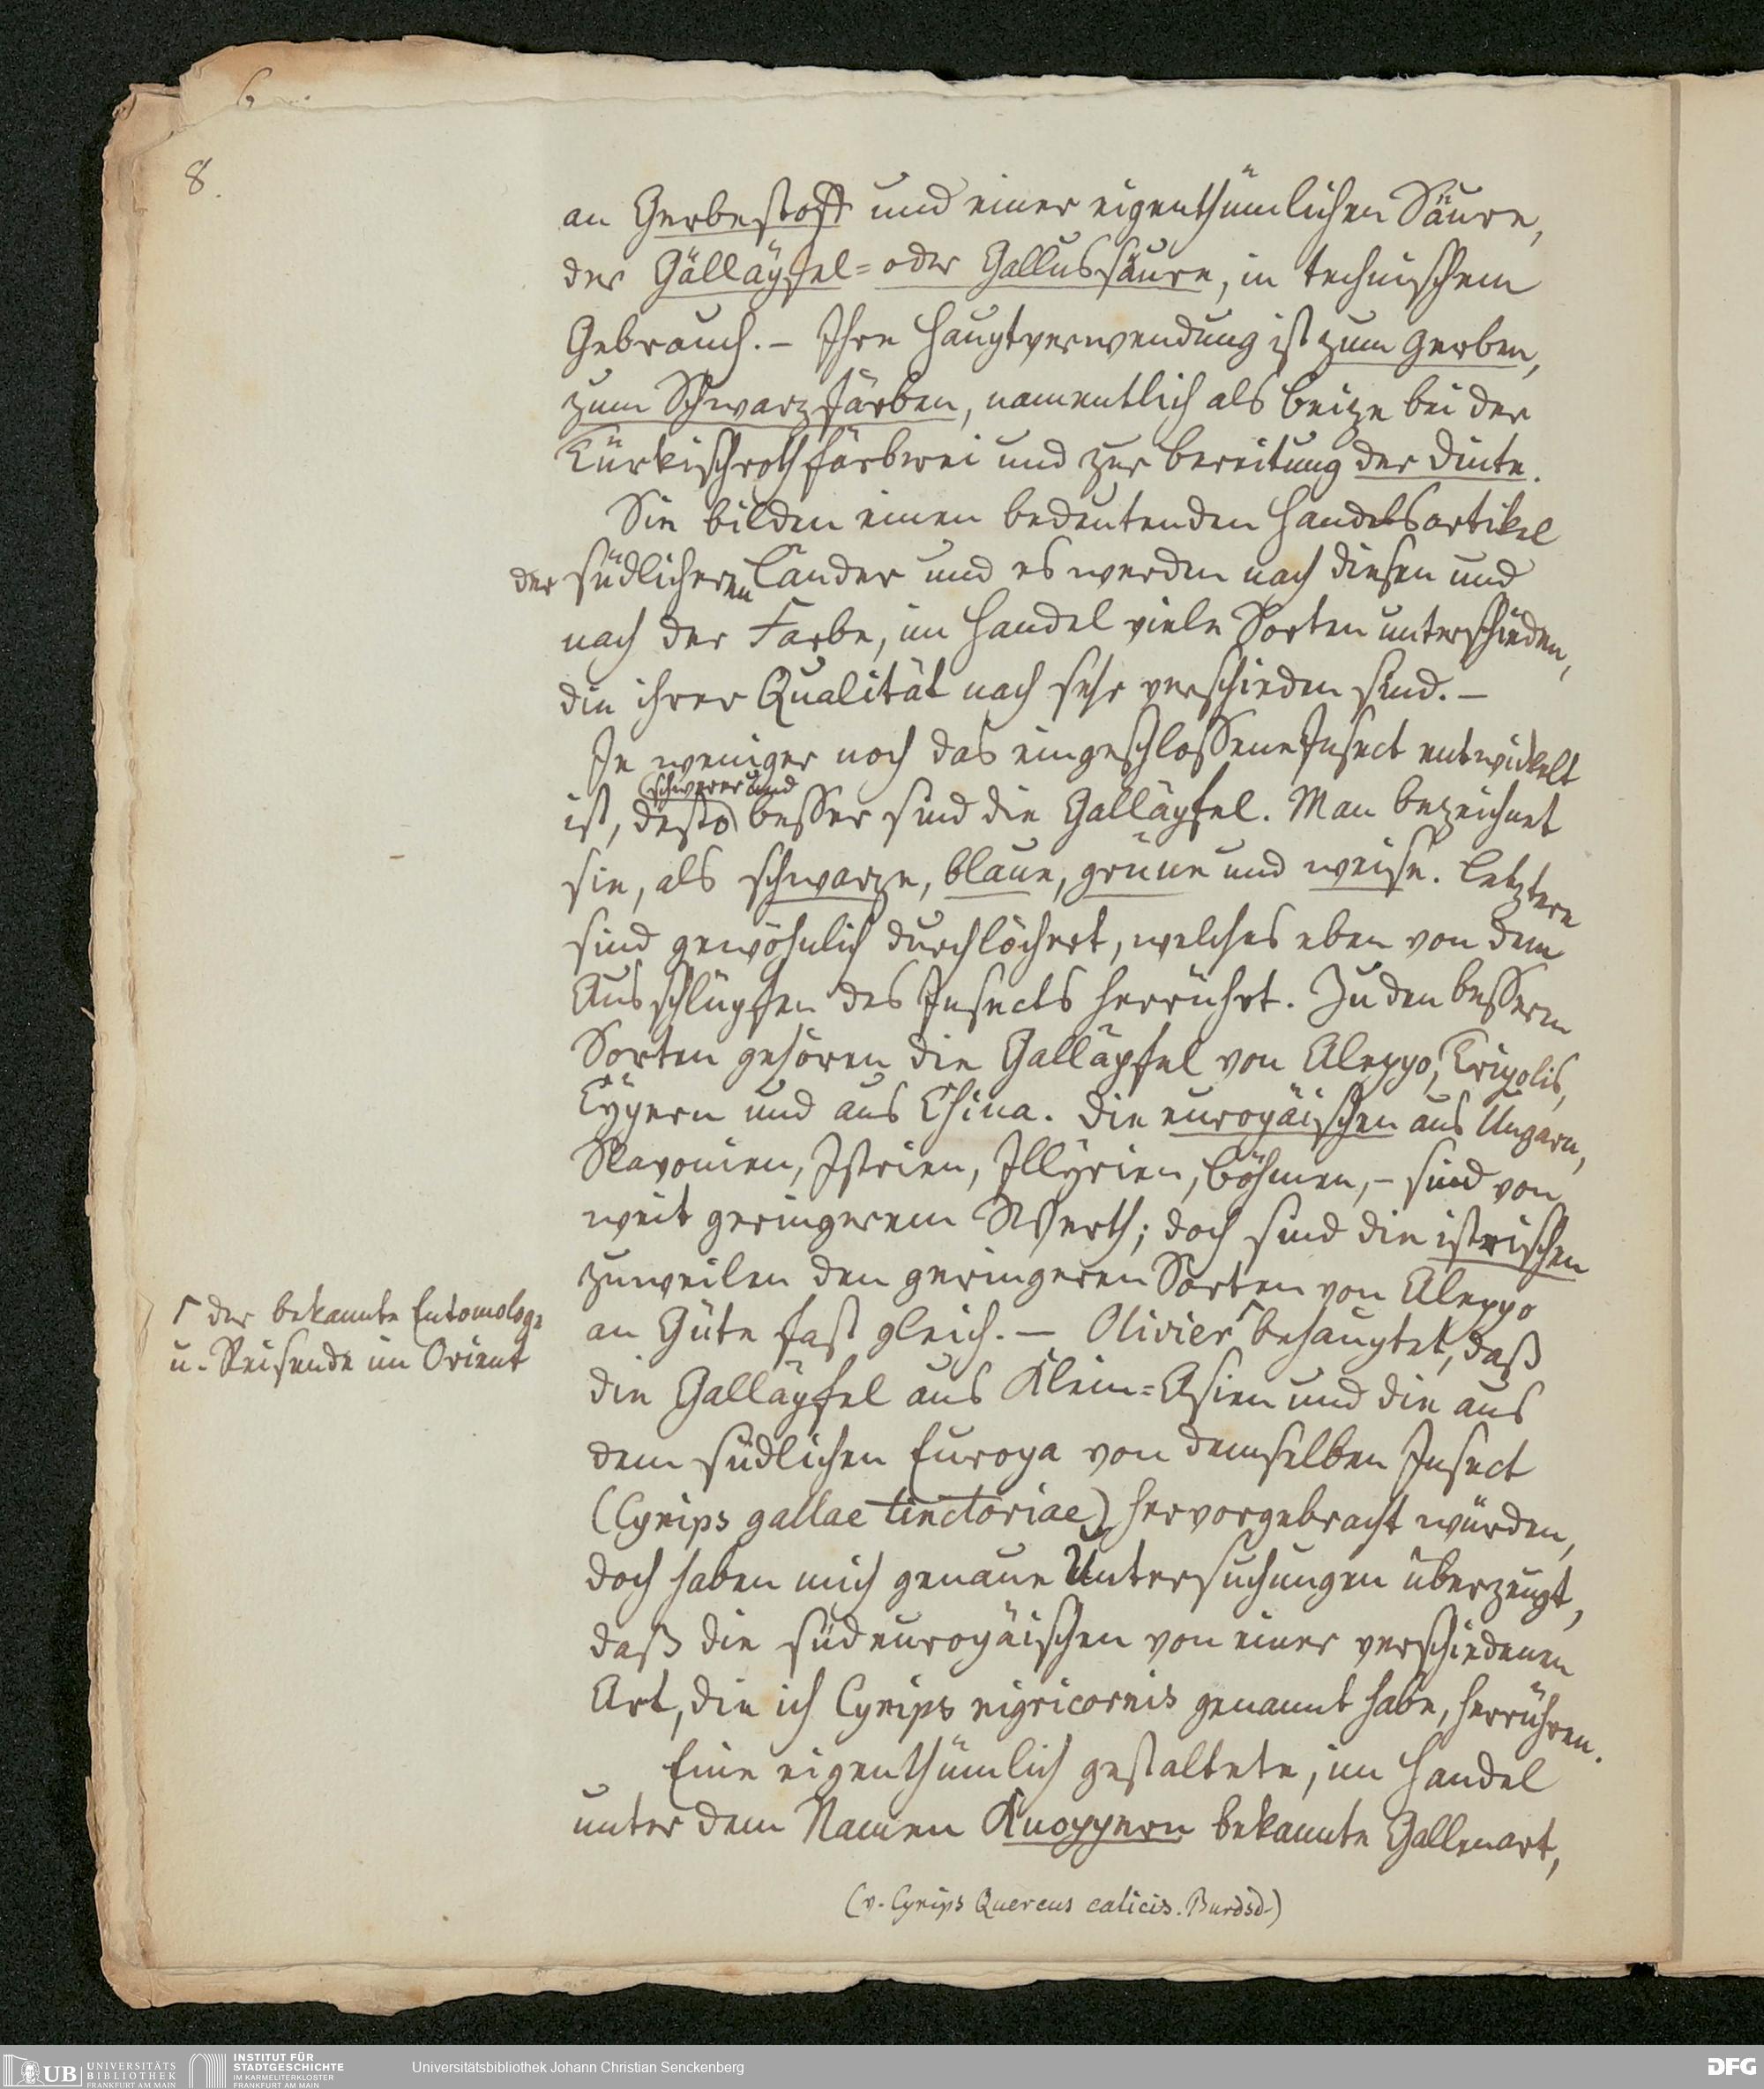 8.
an Gerbestoff und einer eigenthümlichen Säure,
der Galläpfel= oder Gallussäure, in technischem
Gebrauch. – Ihre Hauptverwendung ist zum Gerben,
zum Schwarzfärben, namentlich als Beize bei der
Türkischrothfärberei und zur Bereitung der Dinte.
Sie bilden einen bedeutenden Handelsartikel
der südlicheren Länder und es werden nach diesen und
nach der Farbe, im Handel viele Sorten unterschieden,
die ihrer Qualität nach sehr verschieden sind. –
Je weniger noch das eingeschlossene Insect entwickelt
(schwerer und
ist, desto) besser sind die Galläpfel. Man bezeichnet
sie, als schwarze, blaue, grüne und weise. Letztere
sind gewöhnlich durchlöchert, welches eben von dem
Ausschlüpfen des Insects herrührt. Zu den bessern
Sorten gehören die Galläpfel von Aleppo, Tripolis,
Cypern und aus China. Die europäischen aus Ungarn,
Slavonien, Istrien, Illyrien, Böhmen, – sind von
weit geringerem Werth; doch sind die istrischen
zuweilen den geringeren Sorten von Aleppo
an Güte fast gleich. — Olivier ┌ behauptet, daß
┌ der bekannte Entomologe
u. Reisende im Orient
die Galläpfel aus Klein=Asien und die aus
dem südlichen Europa von demselben Insect
(Cynips gallae tinctoriae) hervorgebracht würden,
doch haben mich genaue Untersuchungen überzeugt,
daß die südeuropäischen von einer verschiedenen
Art, die ich Cynips nigricornis genannt habe, herrühren.
Eine eigenthümlich gestaltete, im Handel
unter dem Namen Knoppern bekannte Gallenart,
(v. Cynips Quercus calicis. Burdsd.)
UB UNIVERSITÄTS
BIBLIOTHEK
FRANKFURT AM MAIN
INSTITUT FÜR
STADTGESCHICHTE
IM KARMELITERKLOSTER
FRANKFURT AM MAIN
Universitätsbibliothek Johann Christian Senckenberg
DFG